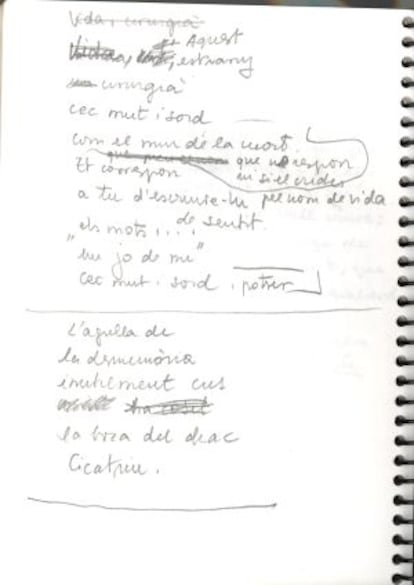 Vida, cirurgià
Aquest
estrany
cirurgià
cec mut i sord
com el mur de la mort
que no respon
Et correspon ni si el crides
a tu d'escriure-hi pel nom de vida
els mots . . . de sentit.
jo de mi"
cec mut i sord i potser
L'agulla de
la desmemòria
inútilment cus
la boca del drac
Cicatriu.